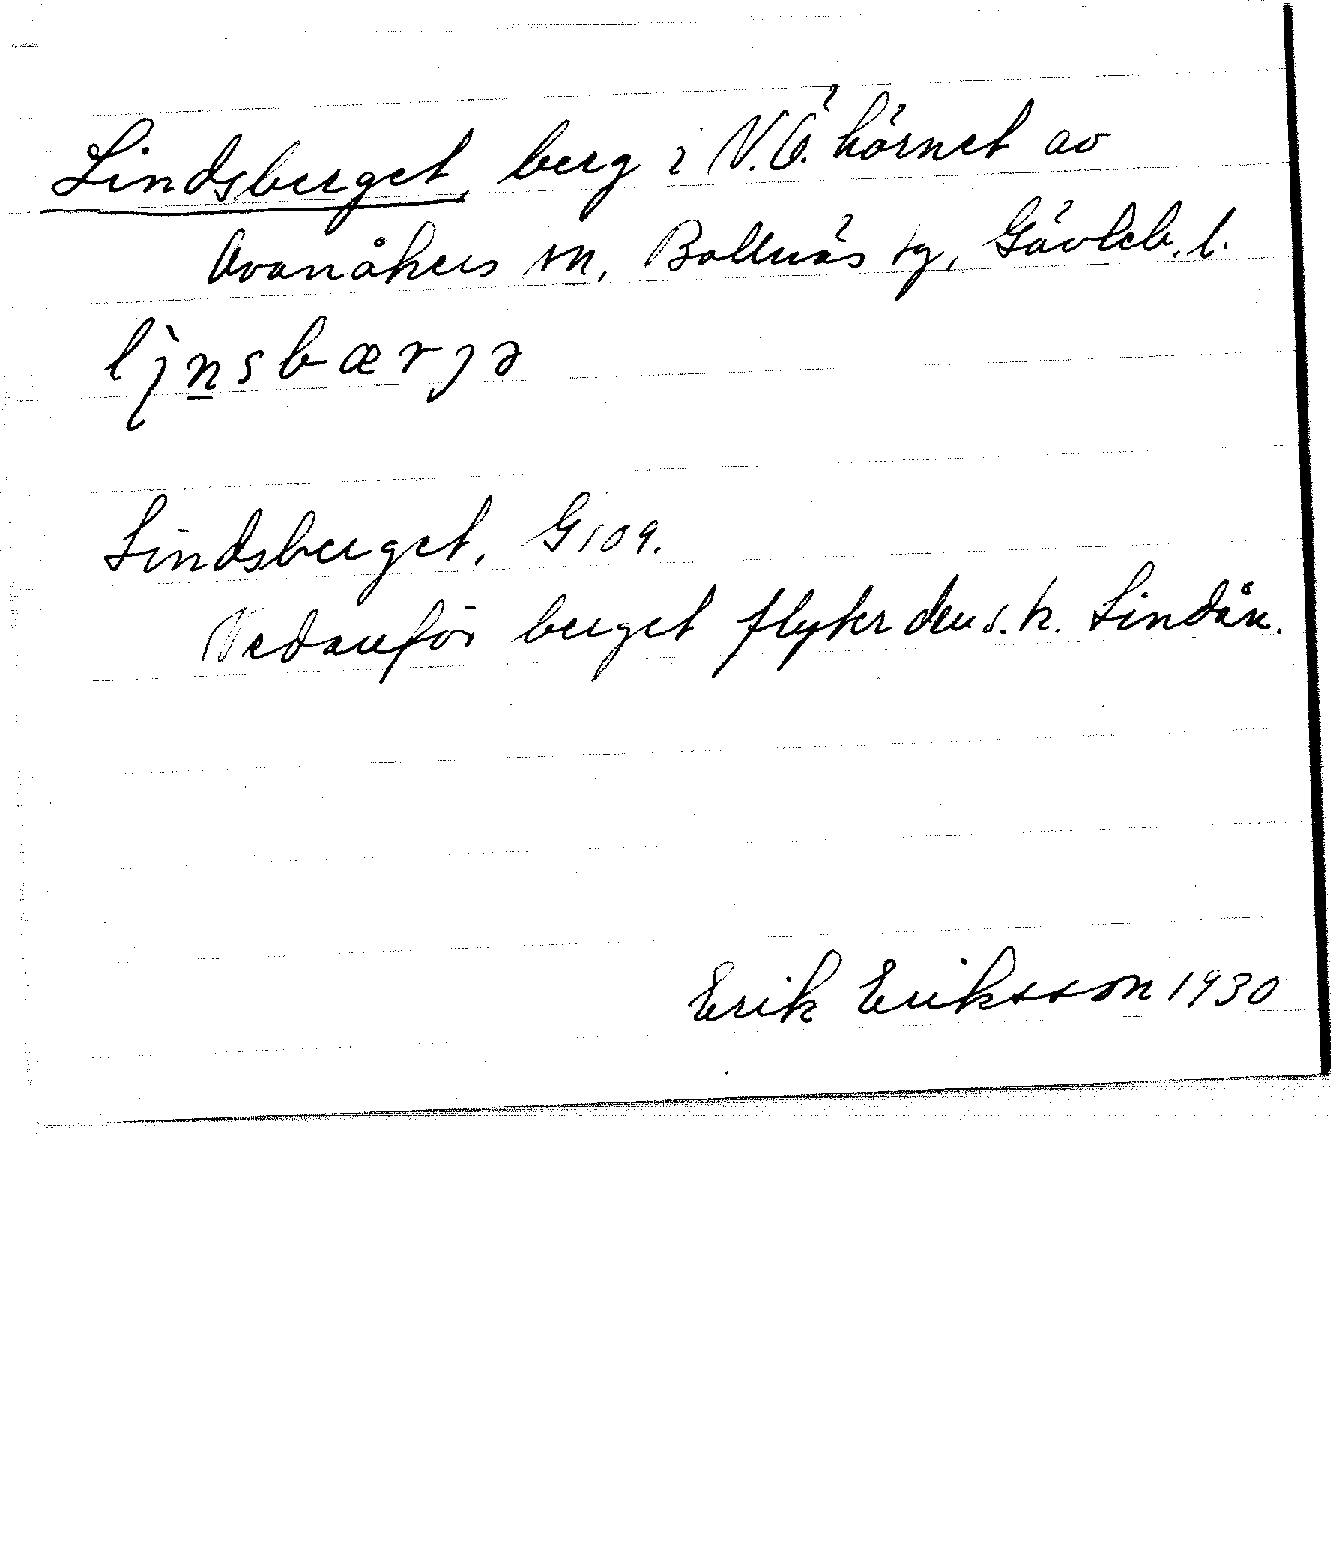 Lindsberget, berg i N.Ö. hörnet av
Ovanåkers sn, Bollnäs tg, Gävleb. l.
Lindsberget. G 109.
Nedanför berget flyter den s. k. Lindån.
Erik Eriksson 1930